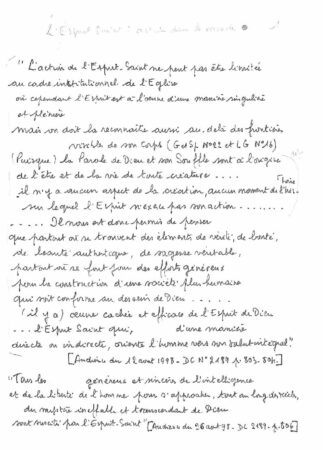 L'Esprit Saint : dans le monde 1
"L'action de l'Esprit-Saint ne peut pas être limitée
au cadre institutionnel de l'Eglise
où cependant l'Esprit est à l'œuvre d'une manière singulière
et plénière
mais on doit la reconnaître aussi au-delà des frontières
visibles de son Corps (G et Sp N°22 et LG N°16)
(Puisque) la Parole de Dieu et son Souffle sont à l'origine
de l'être et de la vie de toute créature ....
il n'y a aucun aspect de la création, aucun moment de l'his-
toire
sur lequel l'Esprit n'exerce pas son action .......
..... Il nous est donc permis de penser
que partout où se trouvent des éléments de vérité, de bonté,
de beauté authentique, de sagesse véritable,
partout où se font jour des efforts généreux
pour la construction d'une société plus humaine
qui soit conforme au dessein de Dieu ....
(il y a) œuvre cachée et efficace de l'Esprit de Dieu
... l'Esprit Saint qui, d'une manière
directe ou indirecte, oriente l'homme vers son salut intégral"
[Audience du 12 août 1998 - DC N°2189 p. 803. 804.]
"Tous les généreux et sincères de l'intelligence
et de la liberté de l'homme pour s'approcher, tout au long des siècles,
du mystère ineffable et transcendant de Dieu
sont suscités par l'Esprit-Saint" [Audience du 26 août 98. DC 2189. p. 806]